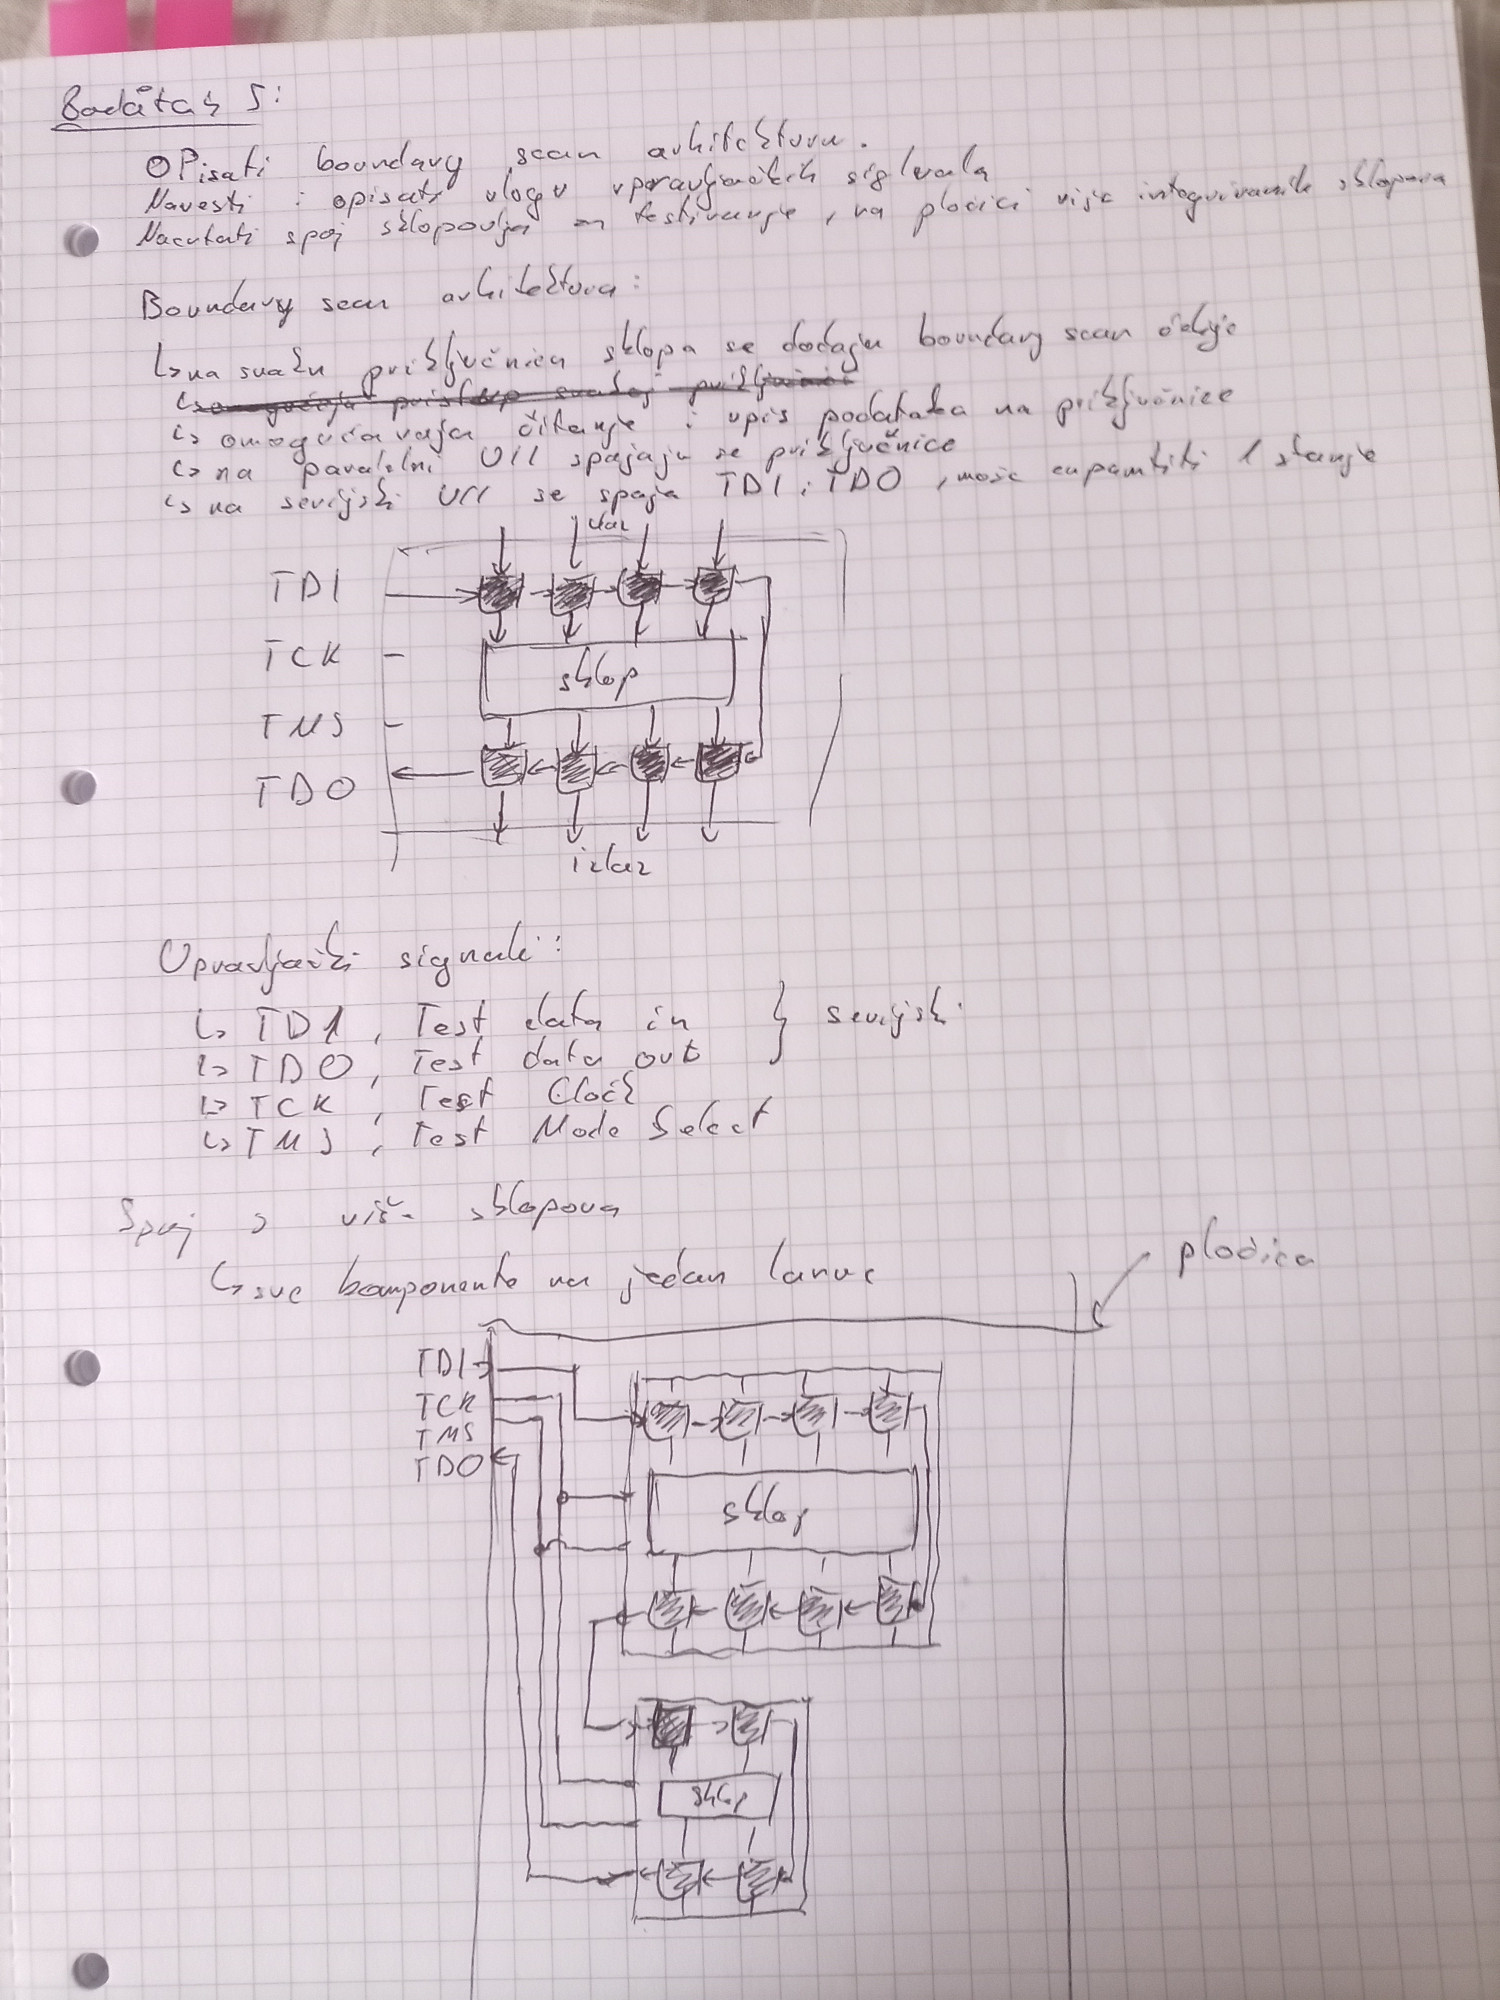 Zadatak 5:
Opisati boundary scan arhitekturu.
Navesti i opisati ulogu upravljačkih signala
Nacrtati spoj sklopovlja za testiranje, na pločici više integriranih sklopova
Boundary scan arhitektura:
↳ na svaku priključnicu sklopa se dodaju boundary scan ćelije
↳ omogućavaju čitanje i upis podataka na priključnice
↳ na paralelni U/I spajaju se priključnice
↳ na serijski U/I se spaja TDI i TDO, može zapamtiti 1 stanje
ulaz
TDI
TCK
sklop
TMS
TDO
izlaz
Upravljački signali:
↳ TDI, Test data in } serijski
↳ TDO, Test data out
↳ TCK, Test Clock
↳ TMS, Test Mode Select
Spoj s više sklopova
↳ sve komponente na jedan lanac
pločica
TDI
TCK
TMS
TDO
sklop
sklop